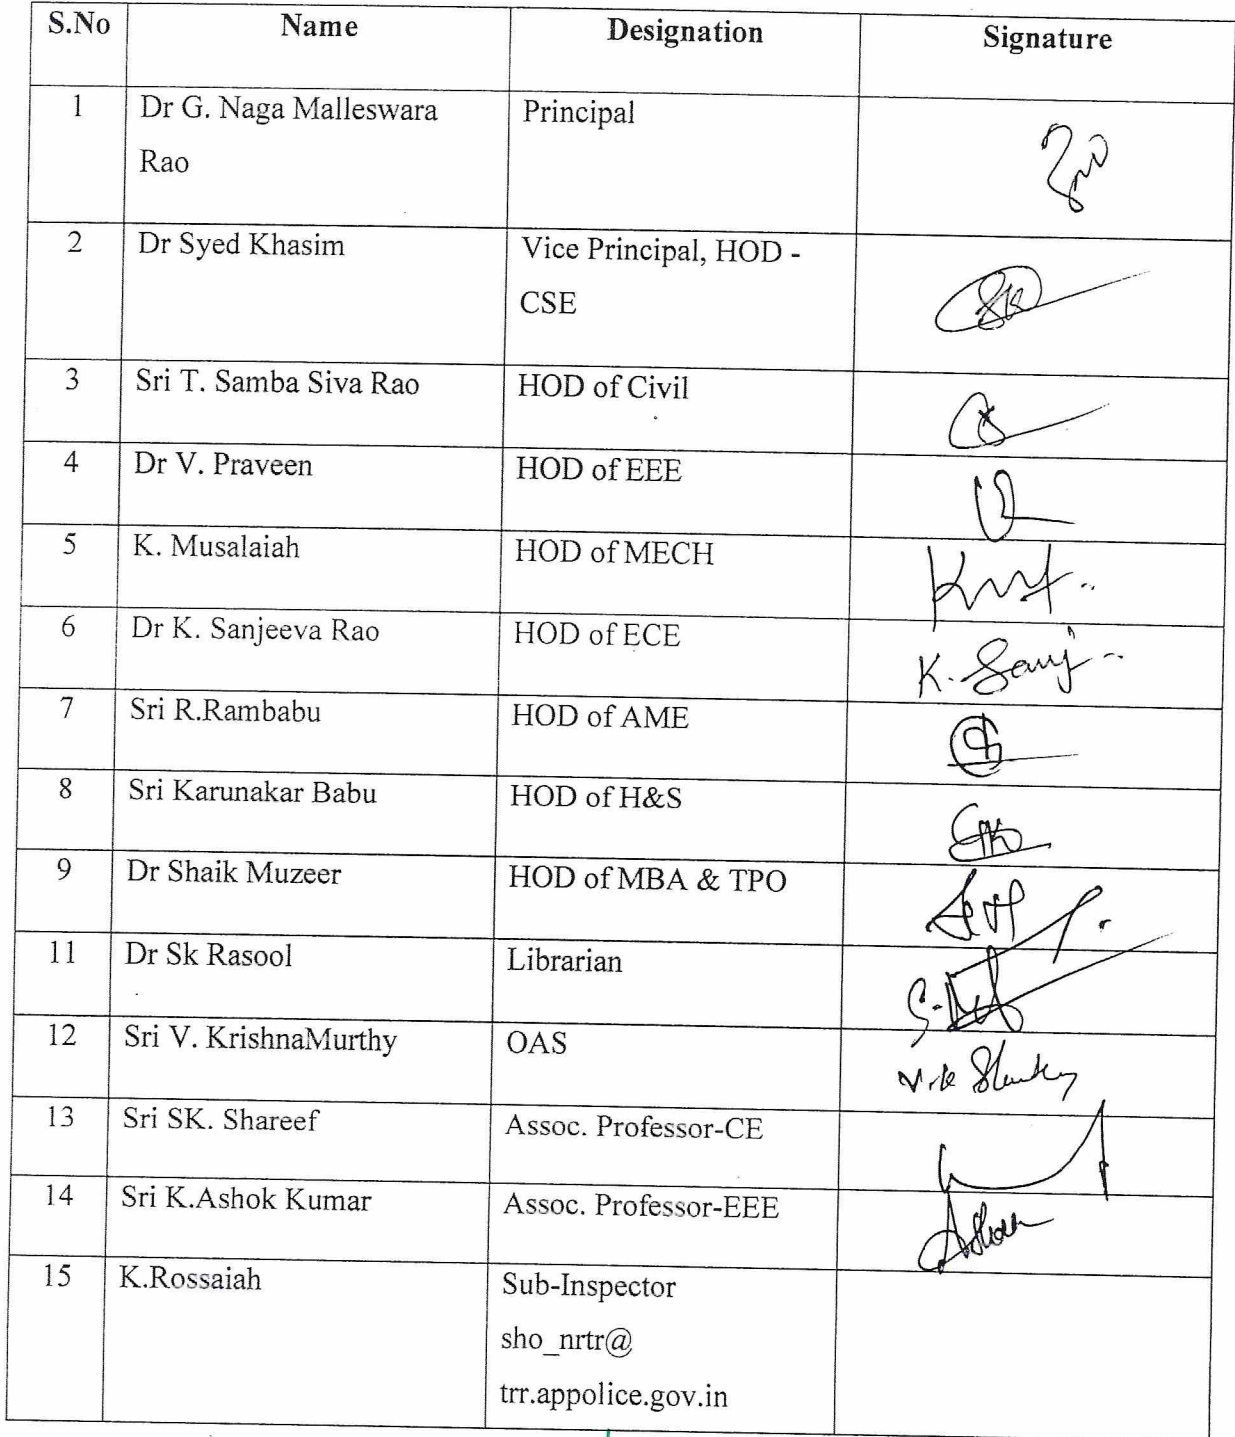 S.No Name Designation Signature
1 Dr G. Naga Malleswara Principal
Rao
2 Dr Syed Khasim Vice Principal, HOD -
CSE
3 Sri T. Samba Siva Rao HOD of Civil
4 Dr V. Praveen HOD of EEE
5 K. Musalaiah HOD of MECH
6 Dr K. Sanjeeva Rao HOD of ECE
K. Sanj
7 Sri R.Rambabu HOD of AME
8 Sri Karunakar Babu HOD of H&S
9 Dr Shaik Muzeer HOD of MBA & TPO
11 Dr Sk Rasool Librarian
12 Sri V. KrishnaMurthy OAS
13 Sri SK. Shareef Assoc. Professor-CE
14 Sri K.Ashok Kumar Assoc. Professor-EEE
Ashok
15 K.Rossaiah Sub-Inspector
sho_nrtr@
trr.appolice.gov.in